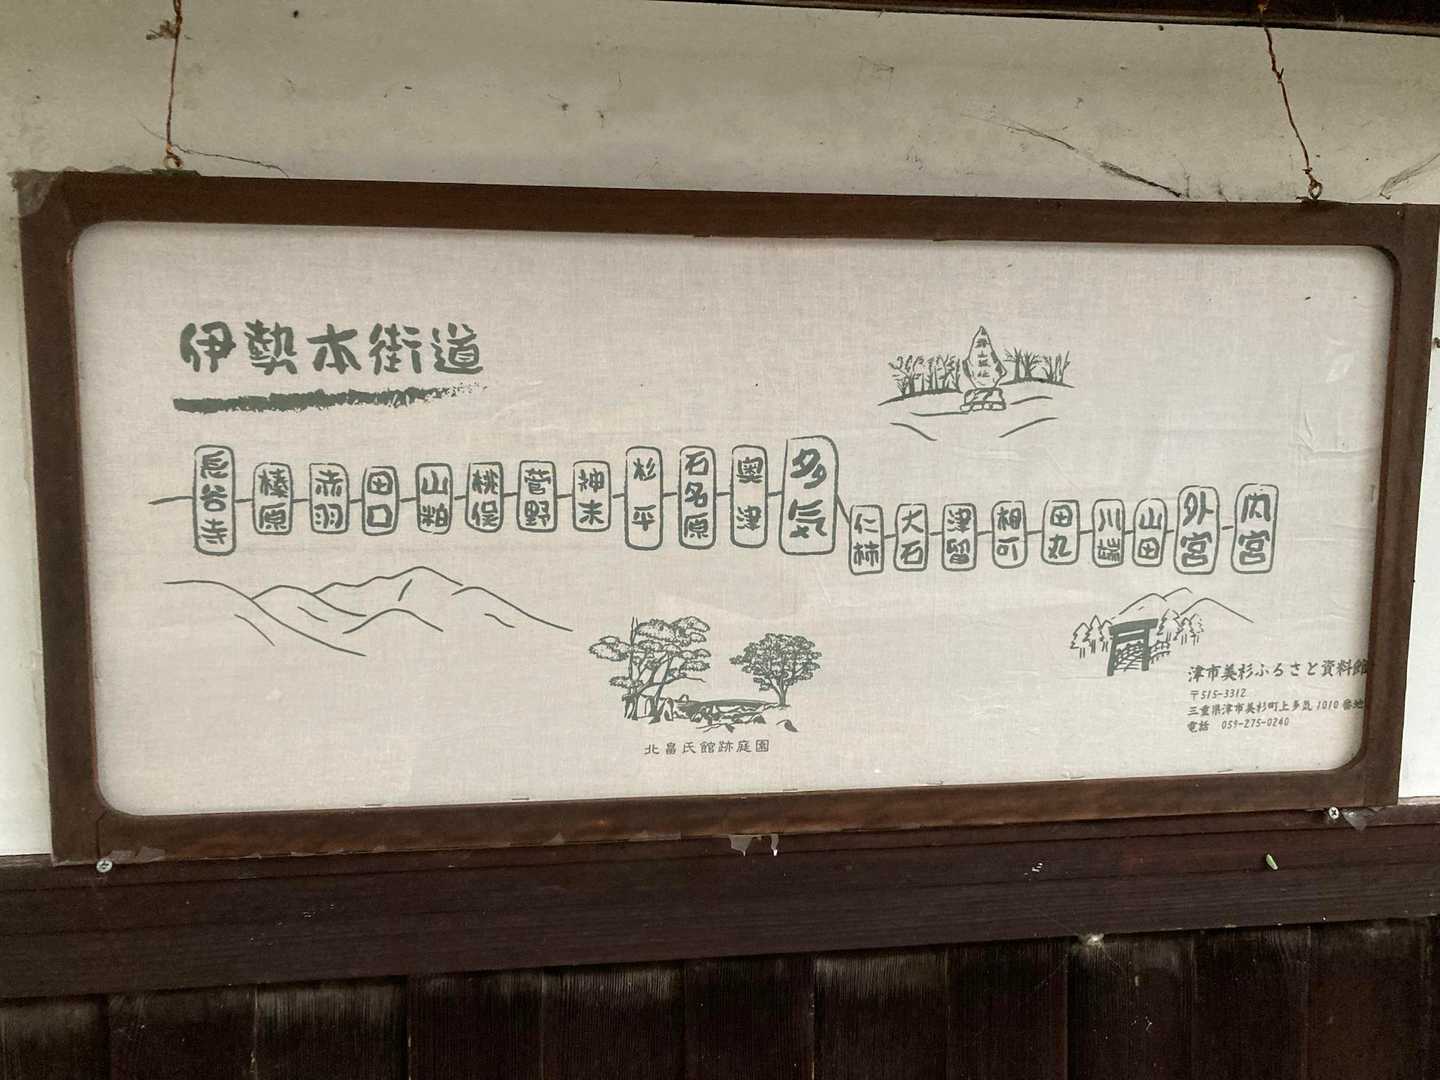 伊勢本街道
長谷寺
榛原
赤羽
田口
山粕
桃俣
菅野
神末
杉平
石名原
奥津
多気
仁柿
大石
津留
相可
田丸
川端
山田
外宮
内宮
霧山城址
北畠氏館跡庭園
津市美杉ふるさと資料館
〒515-3312
三重県津市美杉町上多気1010番地
電話 059-275-0240